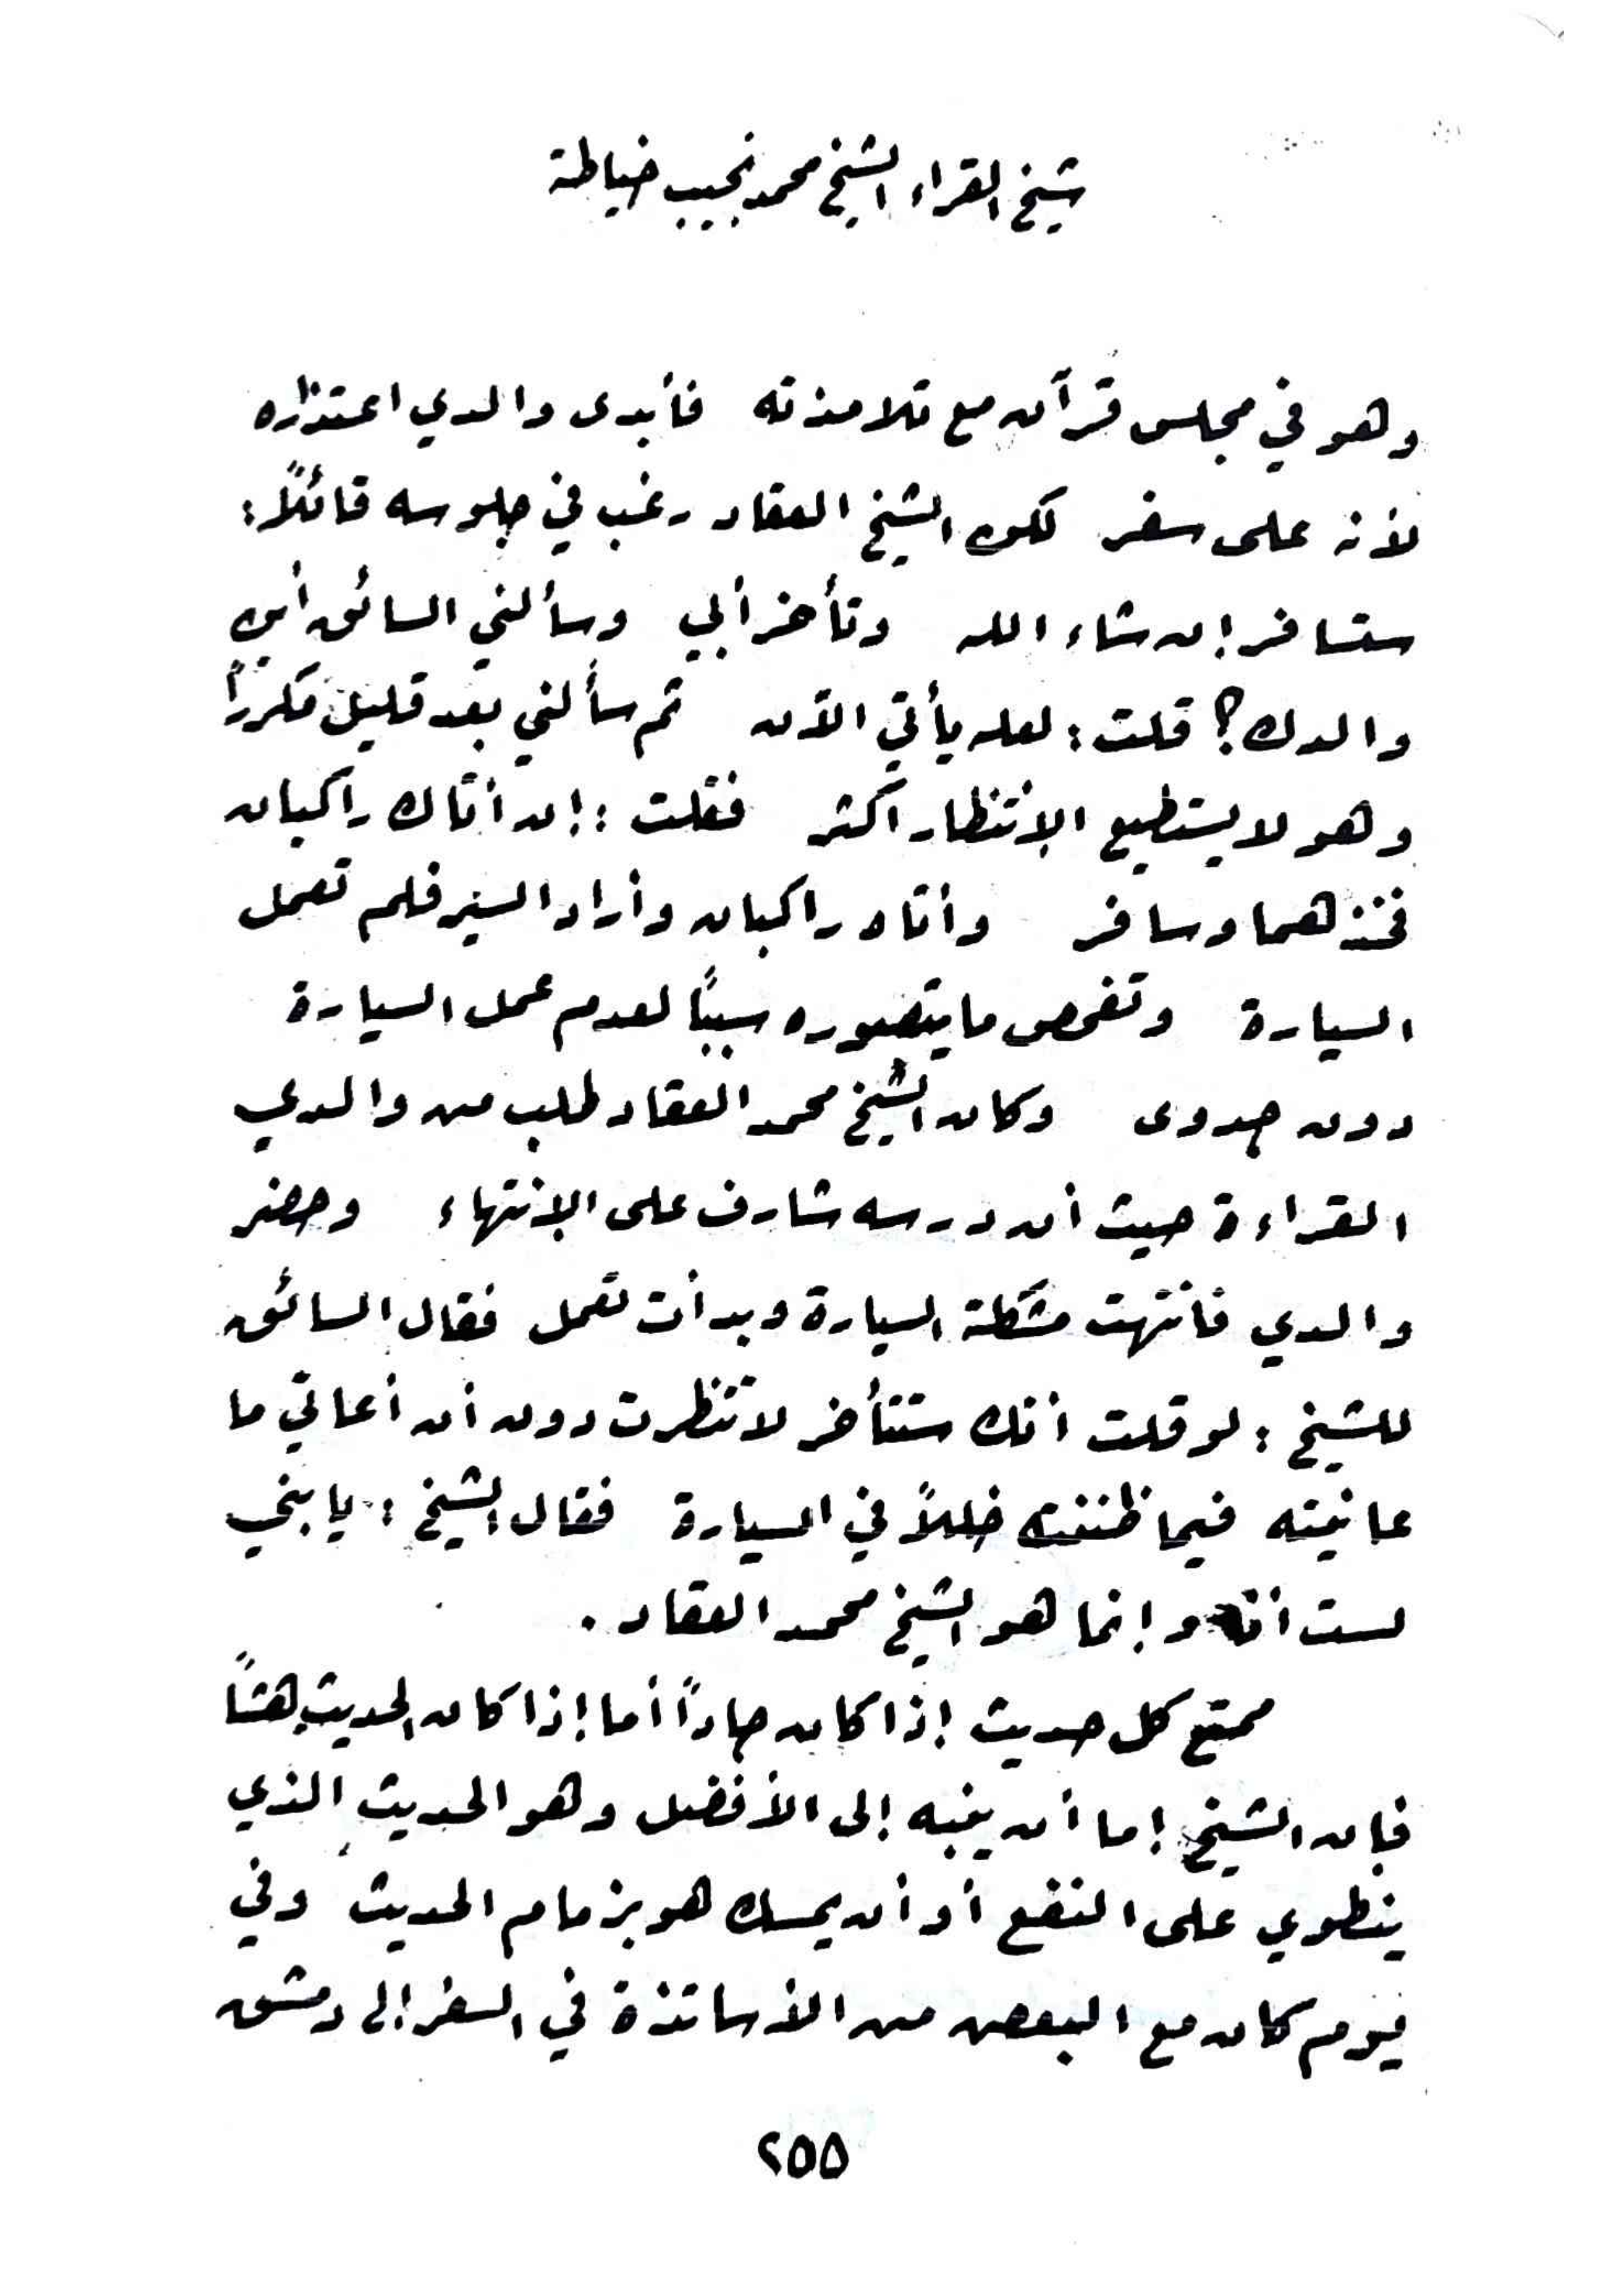 شيخ القراء الشيخ محمد نجيب خياطة
وهو في مجلس قرآن مع تلامذته فأبدى والدي اعتذاره
لأنه على سفر لكن الشيخ العقاد رغب في جلوسه قائلاً:
ستسافر إن شاء الله وتأخر أبي وسألني السائق أين
والدك؟ قلت: لعله يأتي الآن ثم سألني بعد قليل مكرراً
وهو لا يستطيع الإنتظار أكثر فقلت: إن أتاك راكبان
فخذهما وسافر وأتاه راكبان وأراد السير فلم تعمل
السيارة وتفحص ما يتصوره سبباً لعدم عمل السيارة
دون جدوى وكان الشيخ محمد العقاد طلب من والدي
القراءة حيث أن درسه شارف على الإنتهاء وحضر
والدي فانتهت مشكلة السيارة وبدأت تعمل فقال السائق
للشيخ: لو قلت أنك ستتأخر لانتظرت دون أن أعاني ما
عانيته فيما ظننته خللاً في السيارة فقال الشيخ: يا بني
لست أنا وإنما هو الشيخ محمد العقاد.
ممتع كل حديث إذا كان جاداً أما إذا كان الحديث هشاً
فإن الشيخ إما أن ينبه إلى الأفضل وهو الحديث الذي
ينطوي على النفع أو أن يمسك هو بزمام الحديث وفي
يوم كان مع البعض من الأساتذة في السفر إلى دمشق
٢٥٥